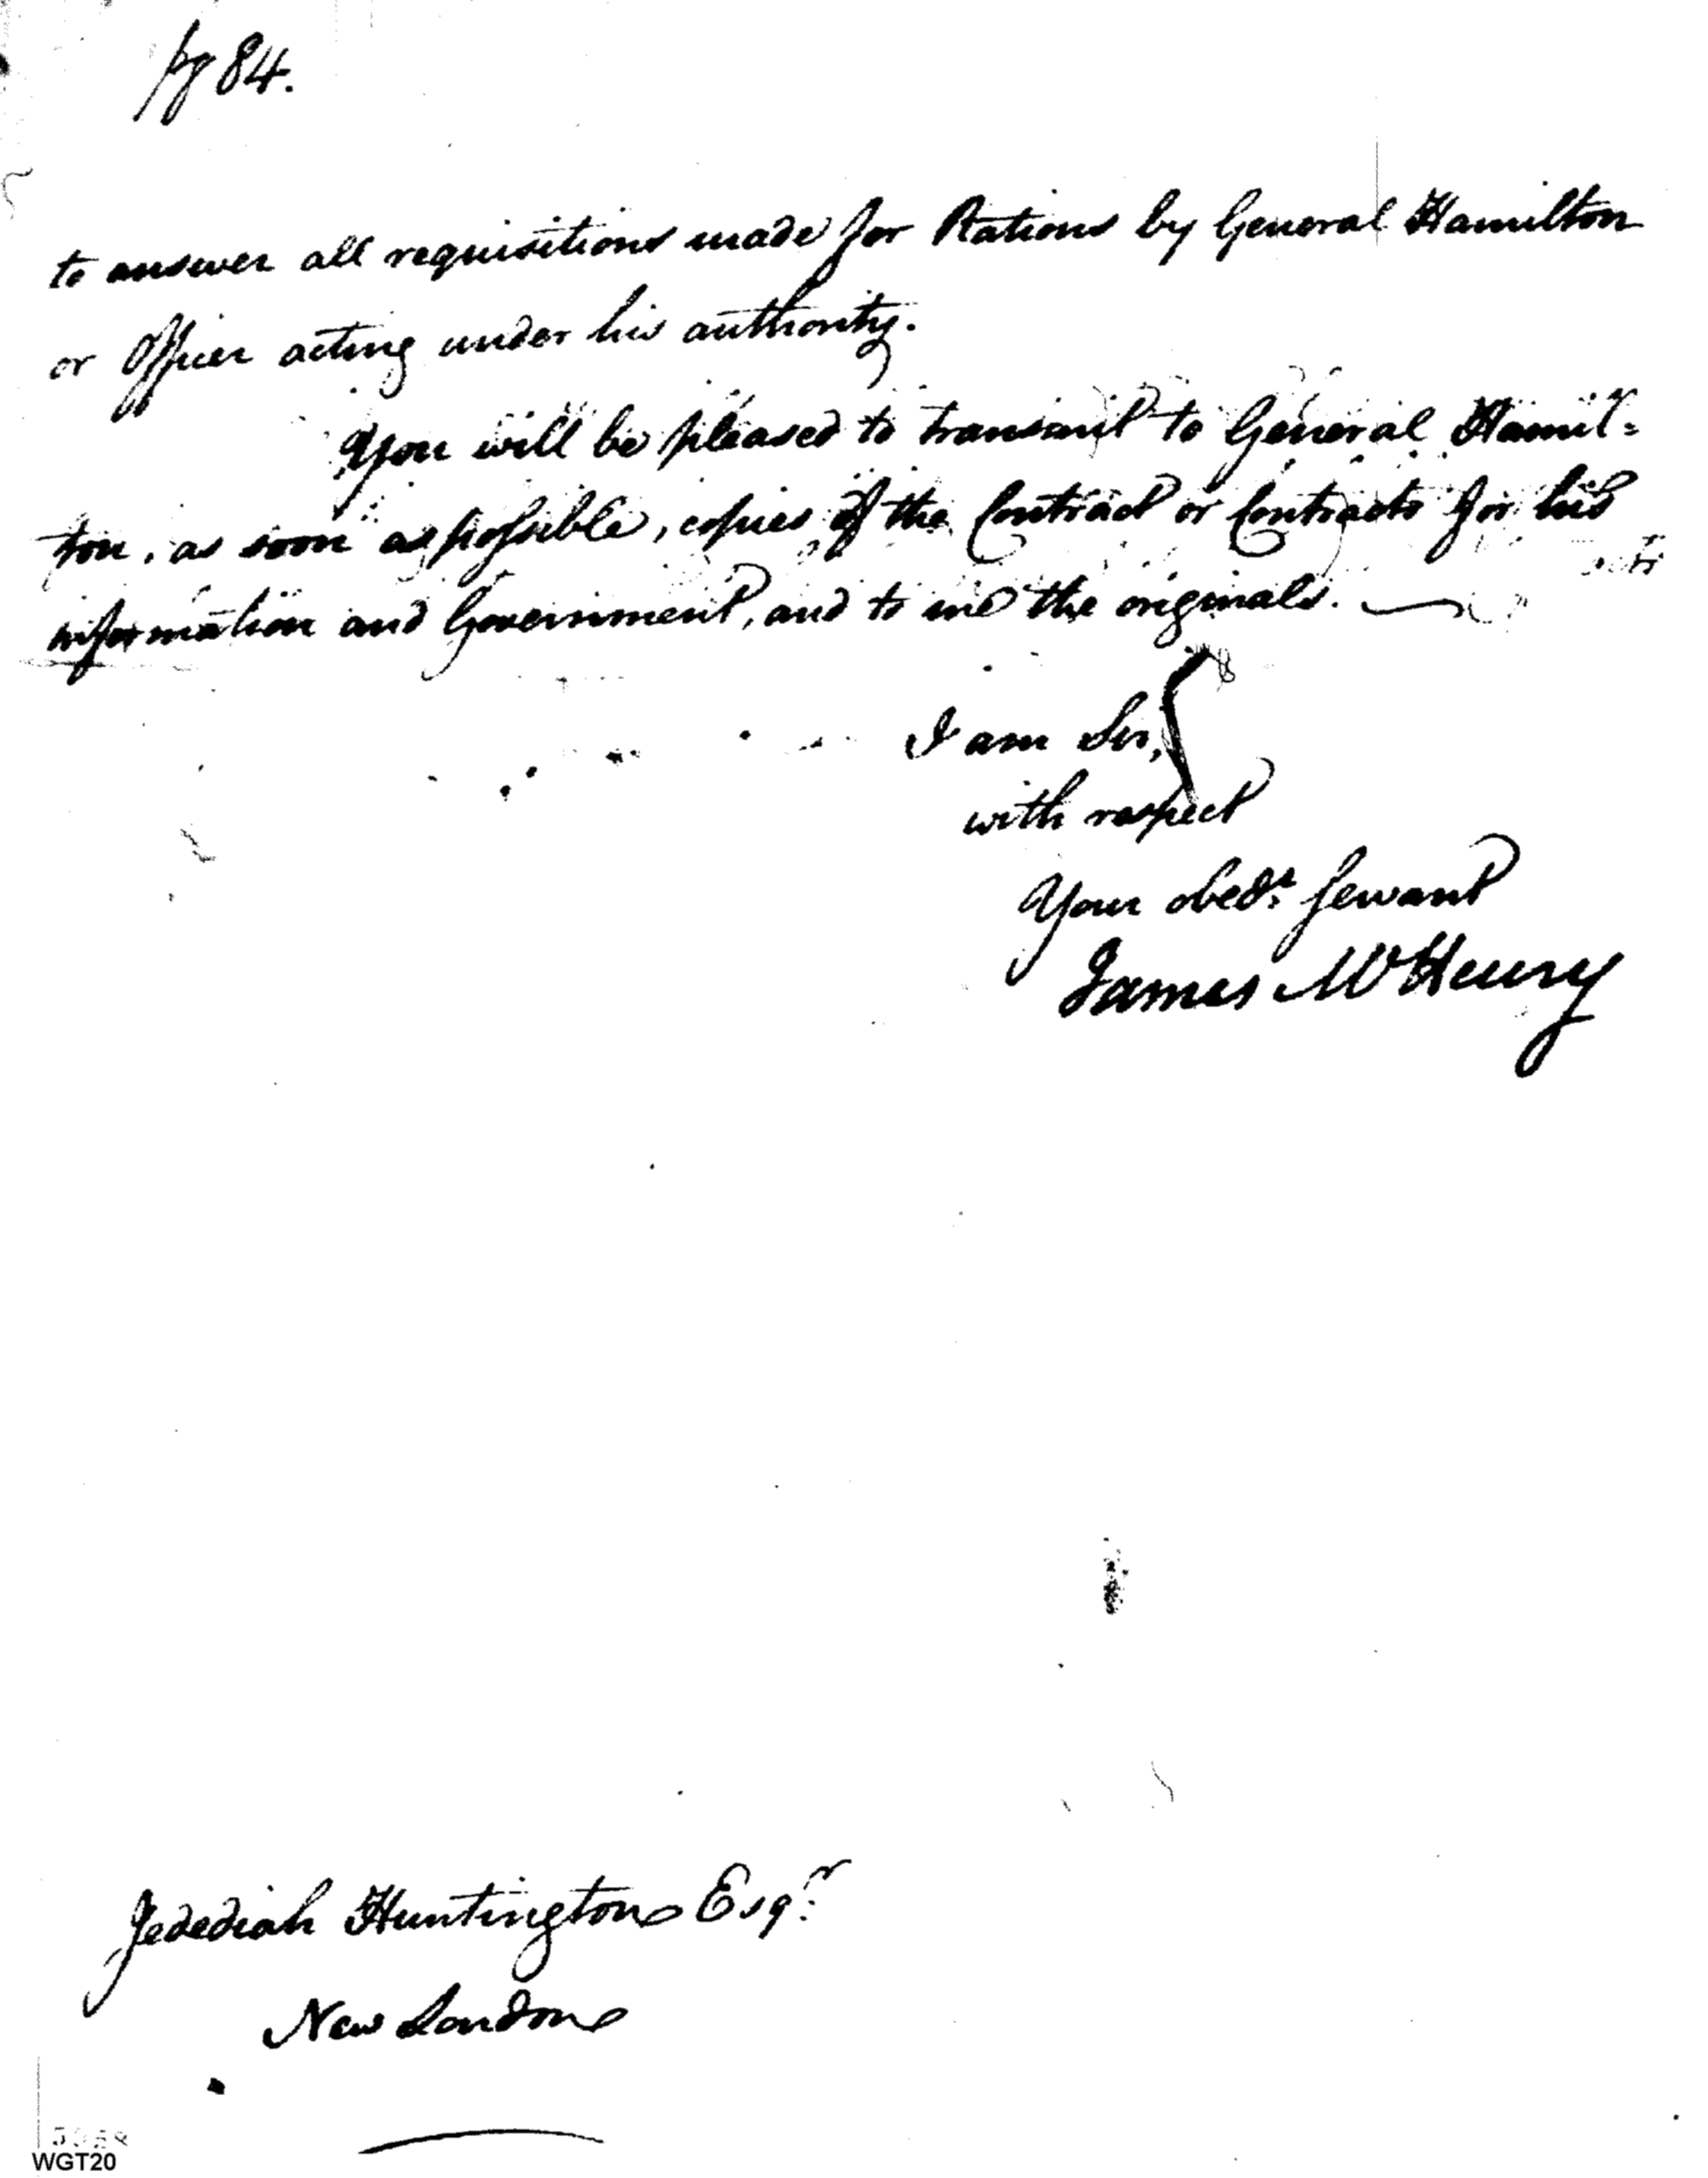 pg 84.
to answer all requisitions made for Rations by General Hamilton
or Officer acting under his authority.
You will be pleased to transmit to General Hamil=
ton, as soon as possible, copies of the Contract or Contracts for his
information and Government, and to me the originals.
I am Sir,
with respect
Your obedt. Servant
James McHenry
Jedediah Huntington Esqr.
New London
WGT20